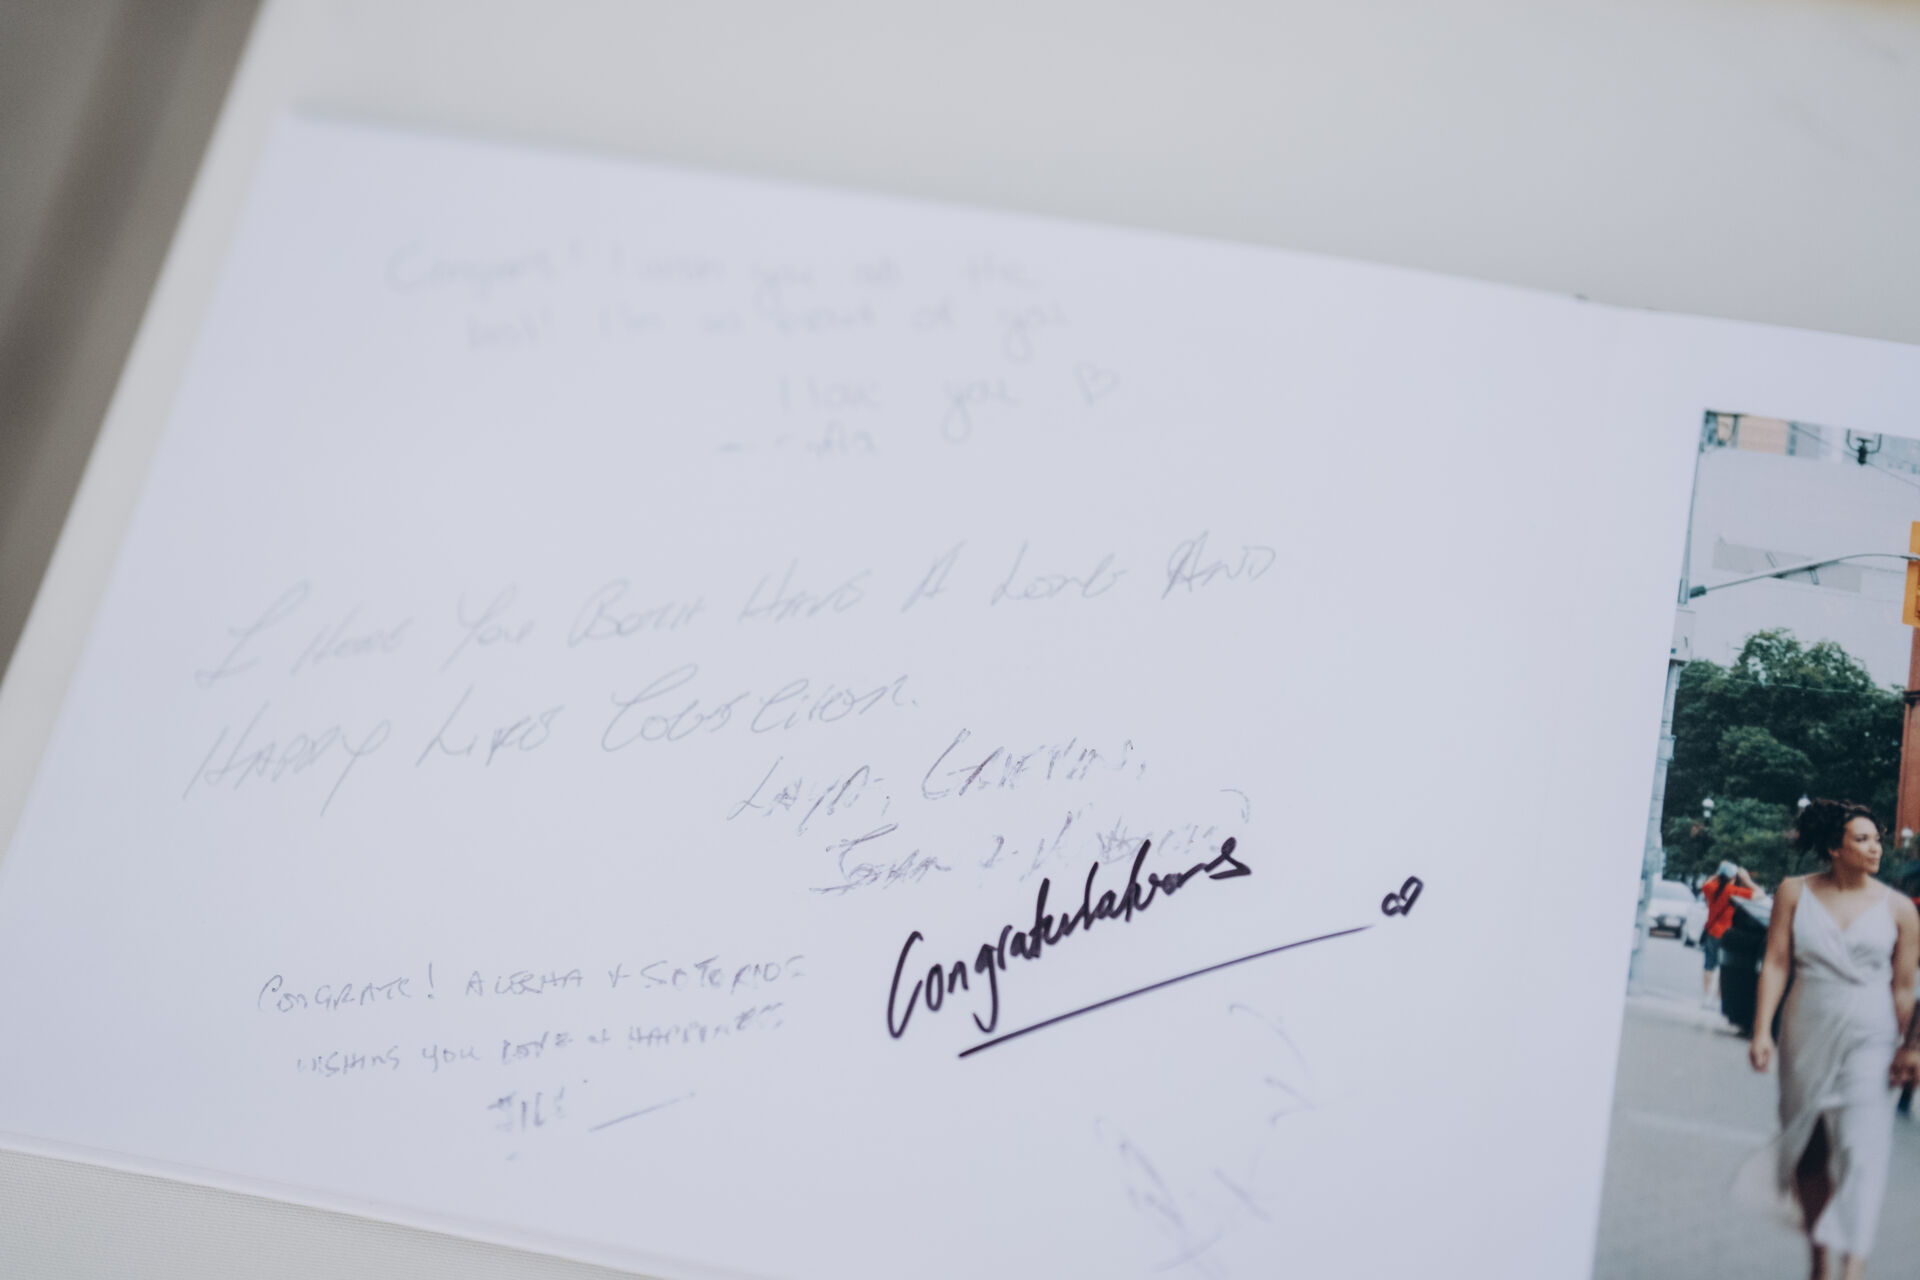 Congrats! I wish you all the
best! I'm so proud of you
I love you
I HOPE YOU BOTH HAVE A LONG AND
HAPPY LIFE TOGETHER.
LAYA, GRIFFIN,
Congratulations
CONGRATS! ALESHA + SOTERIOS
WISHING YOU LOVE + HAPPINESS